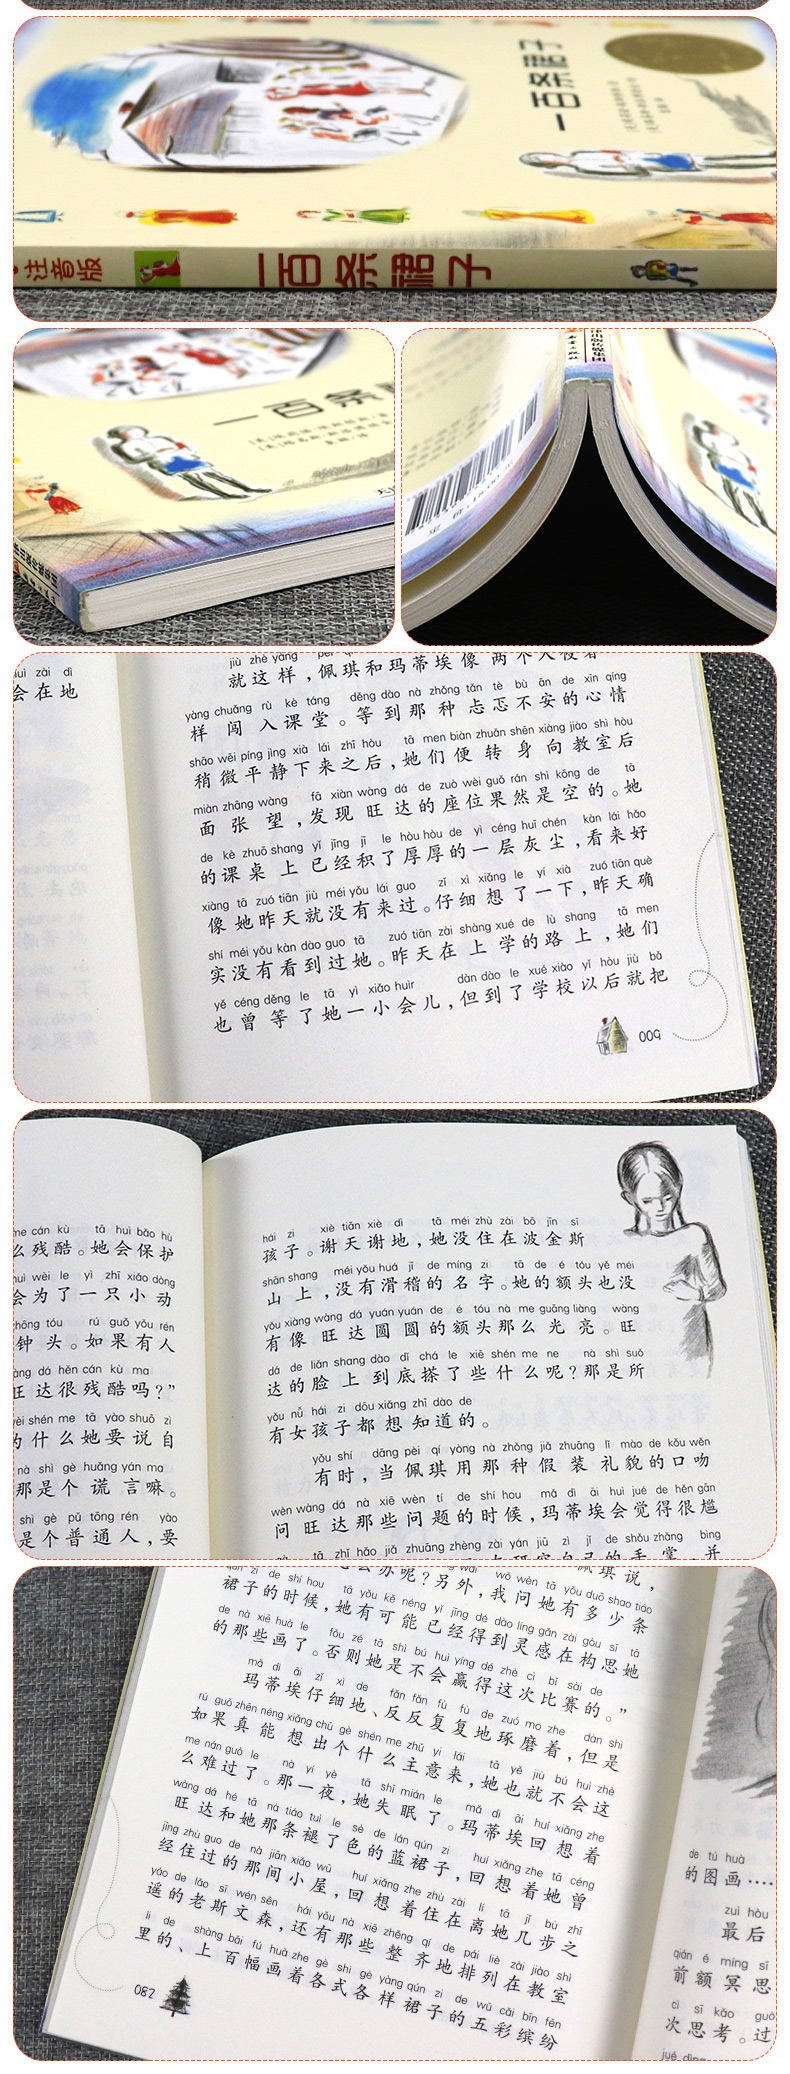 一百条裙子
注音版
一百条裙子
一百条
定价:18.00元
uì zài dì
会在地
jiù zhè yàng
就这样，佩琪和玛蒂埃像两个人
yàng chuǎng rù kè táng děng dào nà zhǒng tǎn tè bù ān de xīn qíng
样闯入课堂。等到那种忐忑不安的心情
shāo wēi píng jìng xià lái zhī hòu tā men biàn zhuǎn shēn xiàng jiào shì hòu
稍微平静下来之后，她们便转身向教室后
miàn zhāng wàng fā xiàn wàng dá de zuò wèi guǒ rán shì kōng de tā
面张望，发现旺达的座位果然是空的。她
de kè zhuō shang yǐ jīng jī le hòu hòu de yì céng huī chén kàn lái hǎo
的课桌上已经积了厚厚的一层灰尘，看来好
xiàng tā zuó tiān jiù méi yǒu lái guo zǐ xì xiǎng le yí xià zuó tiān què
像她昨天就没有来过。仔细想了一下，昨天确
shí méi yǒu kàn dào guo tā zuó tiān zài shàng xué de lù shang tā men
实没有看到过她。昨天在上学的路上，她们
yě céng děng le tā yì xiǎo huìr dàn dào le xué xiào yǐ hòu jiù bǎ
也曾等了她一小会儿，但到了学校以后就把
009
me cán kù tā huì bǎo hù
么残酷。她会保护
huì wèi le yì zhī xiǎo dòng
会为了一只小动
zhōng tóu rú guǒ yǒu rén
钟头。如果有人
àng dá hěn cán kù ma
旺达很残酷吗？”
wèi shén me tā yào shuō zì
为什么她要说自
nà shì gè huǎng yán ma
那是个谎言嘛。
shì gè pǔ tōng rén yào
是个普通人，要
hái zi xiè tiān xiè dì tā méi zhù zài bō jīn sī
孩子。谢天谢地，她没住在波金斯
shān shang méi yǒu huá jī de míng zi tā de é tóu yě méi
山上，没有滑稽的名字。她的额头也没
yǒu xiàng wàng dá yuán yuán de é tóu nà me guāng liàng wàng
有像旺达圆圆的额头那么光亮。旺
dá de liǎn shang dào dǐ chá le xiē shén me ne nà shì suǒ
达的脸上到底搽了些什么呢？那是所
yǒu nǚ hái zi dōu xiǎng zhī dào de
有女孩子都想知道的。
yǒu shí dāng pèi qí yòng nà zhǒng jiǎ zhuāng lǐ mào de kǒu wěn
有时，当佩琪用那种假装礼貌的口吻
wèn wàng dá nà xiē wèn tí de shí hou mǎ dì āi huì jué de hěn gān
问旺达那些问题的时候，玛蒂埃会觉得很尴
tā zhǐ hǎo jiǎ zhuāng zhèng zài yán jiū zì jǐ de shǒu zhǎng bìng
么办呢？另外，我问她有多少条
wǒ wèn tā yǒu duō shao tiáo
qún zi de shí hou tā yǒu kě néng yǐ jīng dé dào líng gǎn zài gòu sī tā
裙子的时候，她有可能已经得到灵感在构思她
de nà xiē huà le fǒu zé tā shì bú huì yíng dé zhè cì bǐ sài de
的那些画了。否则她是不会赢得这次比赛的。”
mǎ dì āi zǐ xì de fǎn fǎn fù fù de zuó mo zhe dàn shì
玛蒂埃仔细地、反反复复地琢磨着，但是
rú guǒ zhēn néng xiǎng chū gè shén me zhǔ yi lái tā yě jiù bú huì zhè
如果真能想出个什么主意来，她也就不会这
me nán guò le nà yí yè tā shī mián le mǎ dì āi huí xiǎng zhe
么难过了。那一夜，她失眠了。玛蒂埃回想着
wàng dá hé tā nà tiáo tuì le sè de lán qún zi huí xiǎng zhe tā céng
旺达和她那条褪了色的蓝裙子，回想着她曾
jīng zhù guo de nà jiān xiǎo wū huí xiǎng zhe zhù zài lí tā jǐ bù zhī
经住过的那间小屋，回想着住在离她几步之
yáo de lǎo sī wén sēn hái yǒu nà xiē zhěng qí de pái liè zài jiào shì
遥的老斯文森，还有那些整齐地排列在教室
li de shàng bǎi fú huà zhe gè shì gè yàng qún zi de wǔ cǎi bīn fēn
里的、上百幅画着各式各样裙子的五彩缤纷
082
de tú huà
的图画……
zuì hòu
最后
qián é míng sī
前额冥思
cì sī kǎo guò
次思考。过
jué dìng